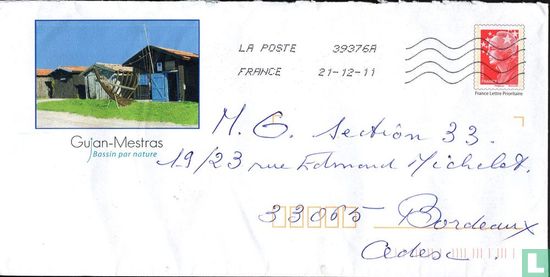 LA POSTE 39376A
FRANCE 21-12-11
France Lettre Prioritaire
Gujan-Mestras
Bassin par nature
M. G. Section 33.
19/23 rue Edmond Michelet.
33065 Bordeaux
Cedex.